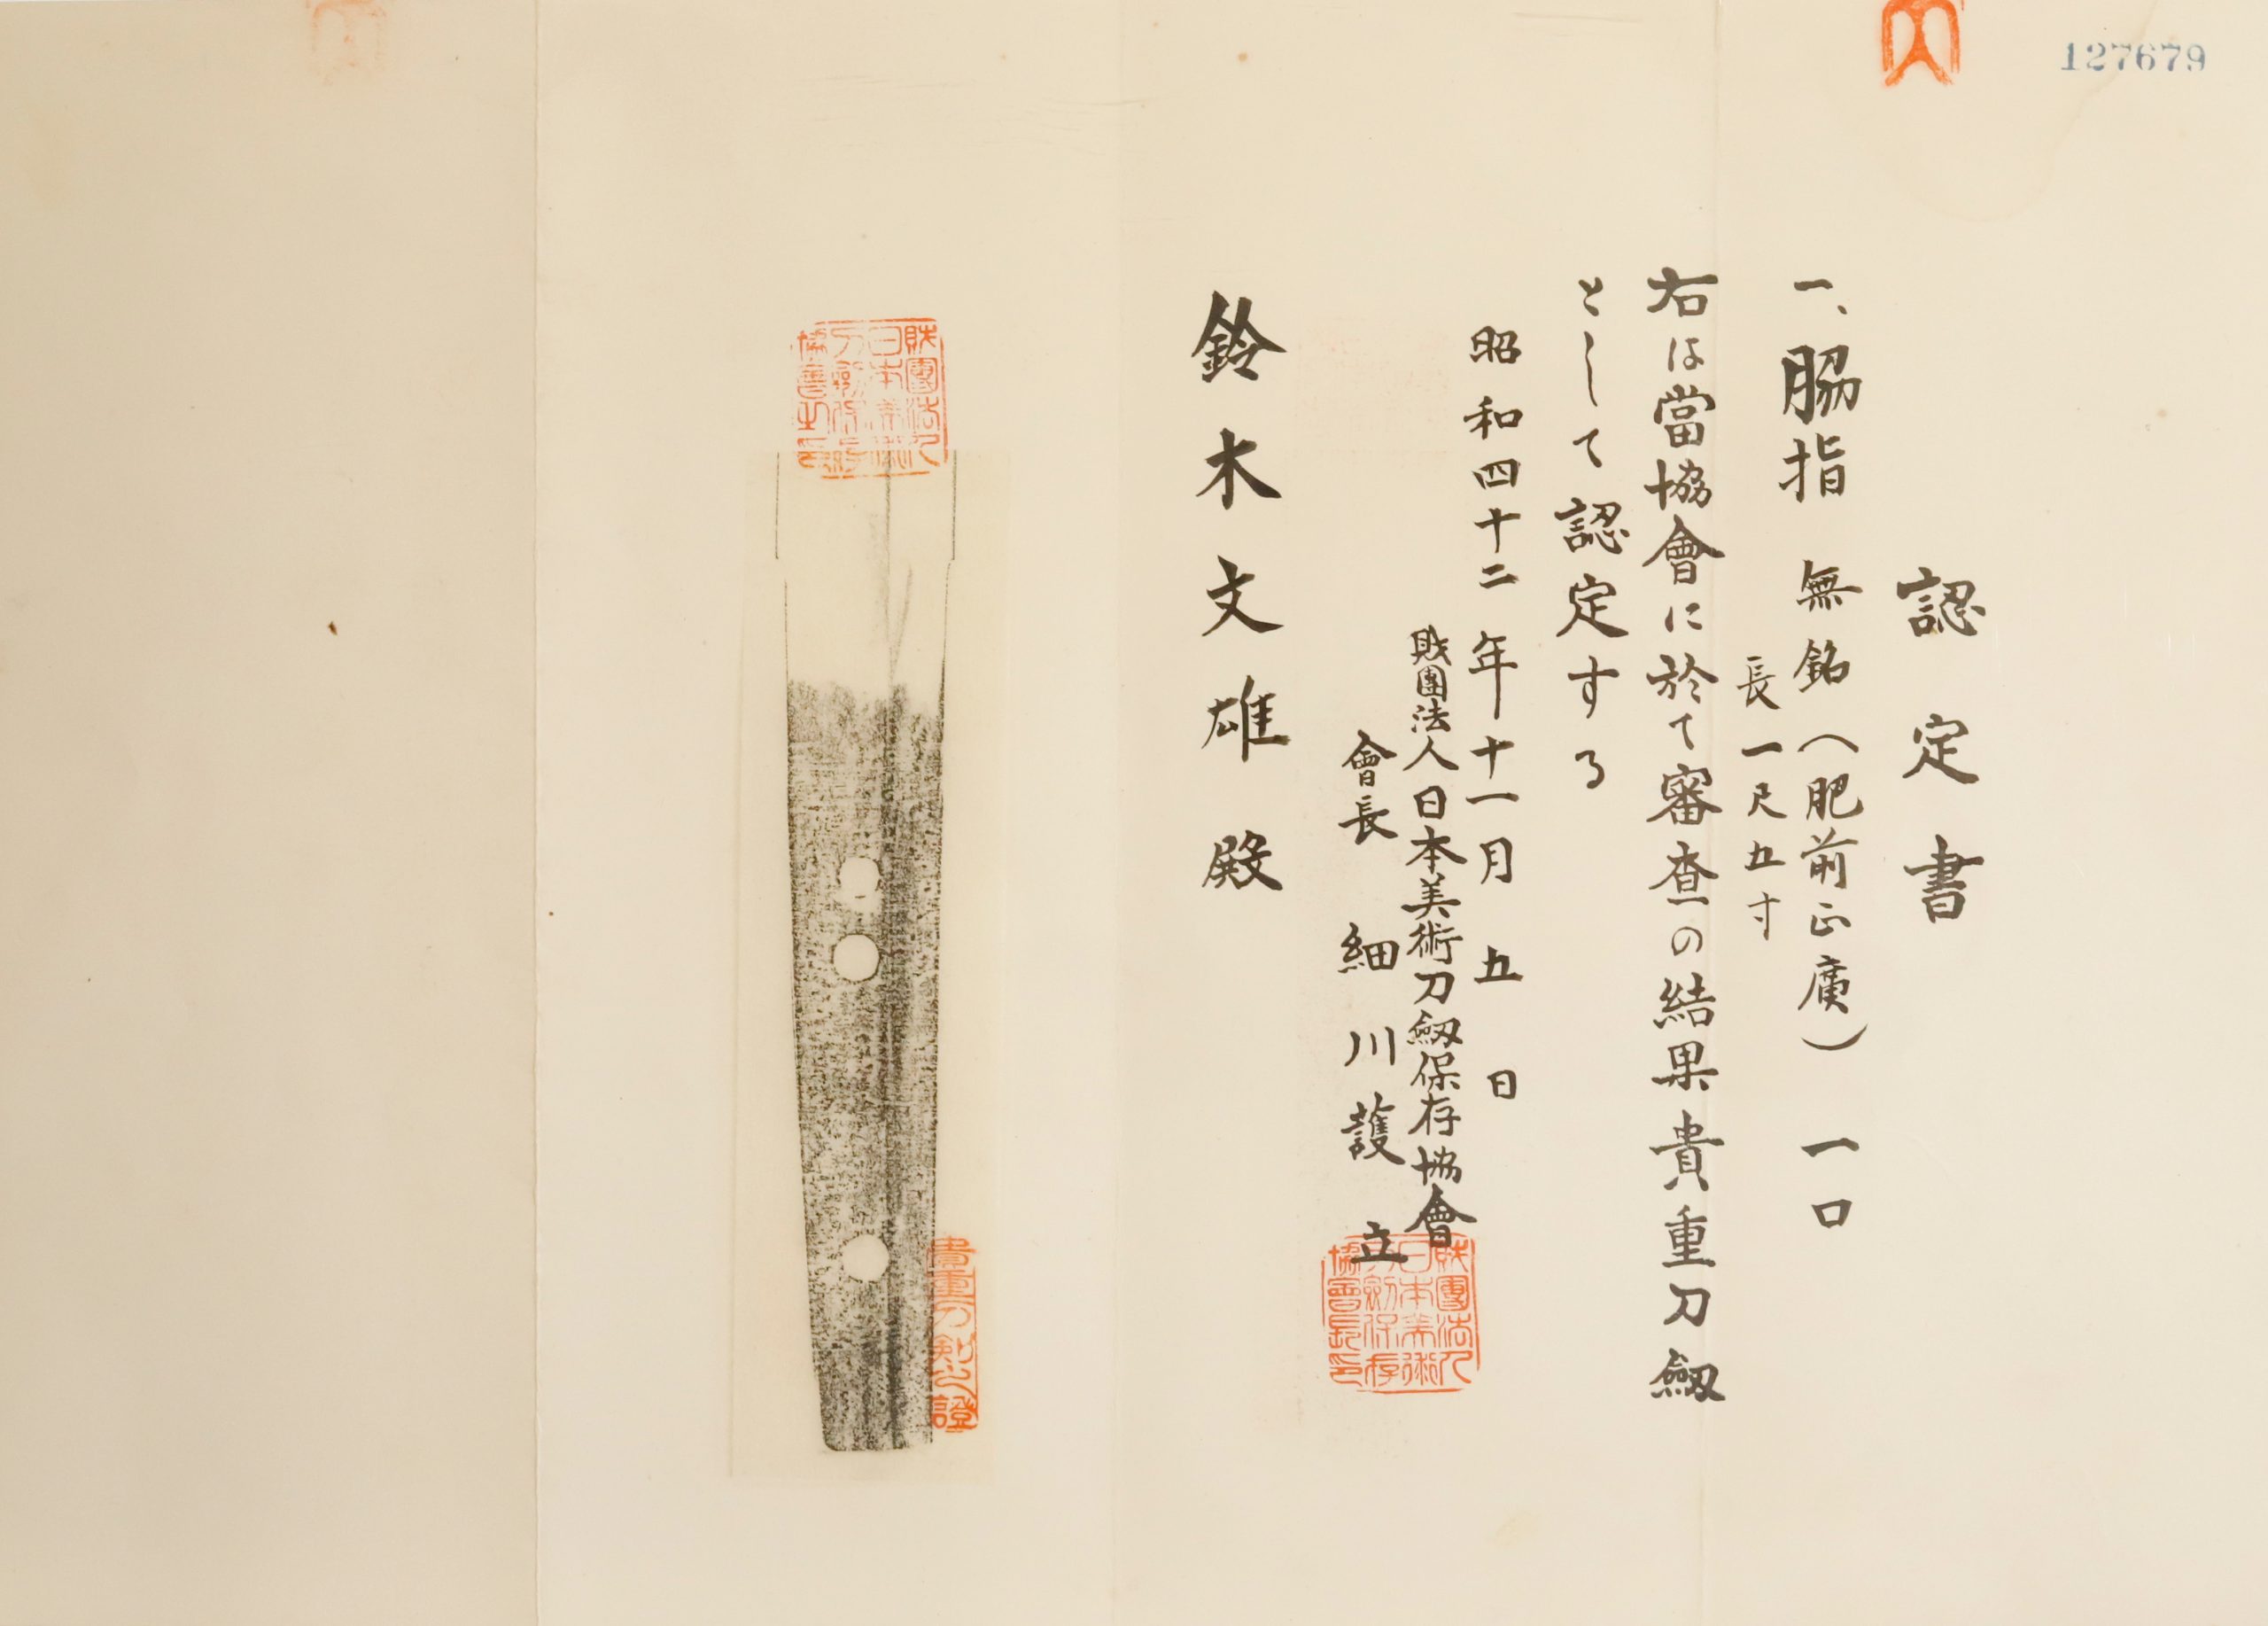 127679
認定書
一、脇指 無銘(肥前正廣) 一口
長一尺五寸
右は當協會に於て審査の結果貴重刀劔
として認定する
昭和四十二年十一月五日
財團法人日本美術刀劔保存協會
會長 細川護立
財團法人日本美術刀劔保存協會長印
鈴木文雄殿
貴重刀剣之證